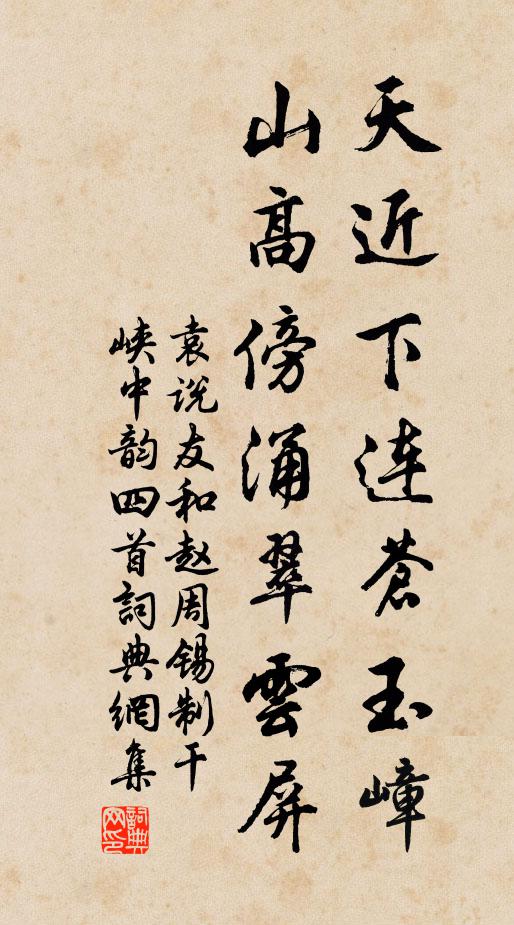 天近下连蒼玉嶂
山高傍涌翠雲屏
袁说友和赵周锡制干
峡中韵四首詞典網集
詞典网印